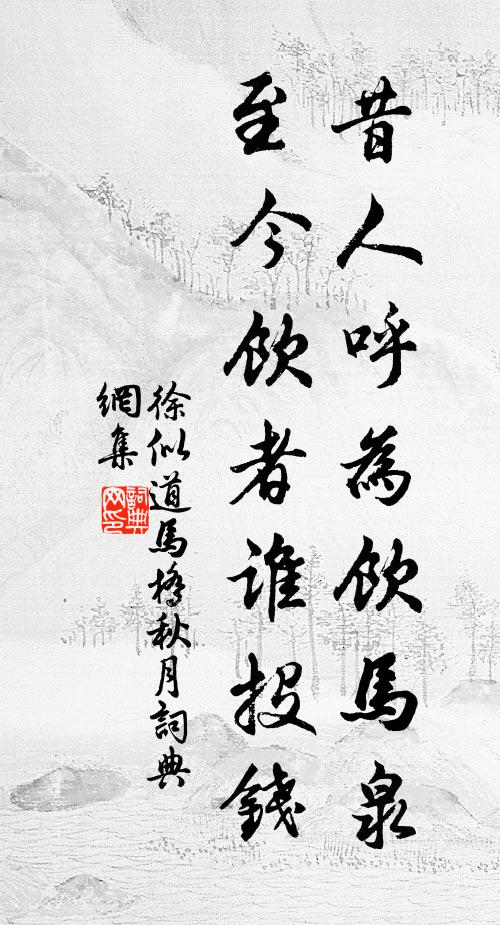 昔人呼為飲馬泉
至今飲者誰投錢
徐似道馬橋秋月詞典
網集
詞典網印